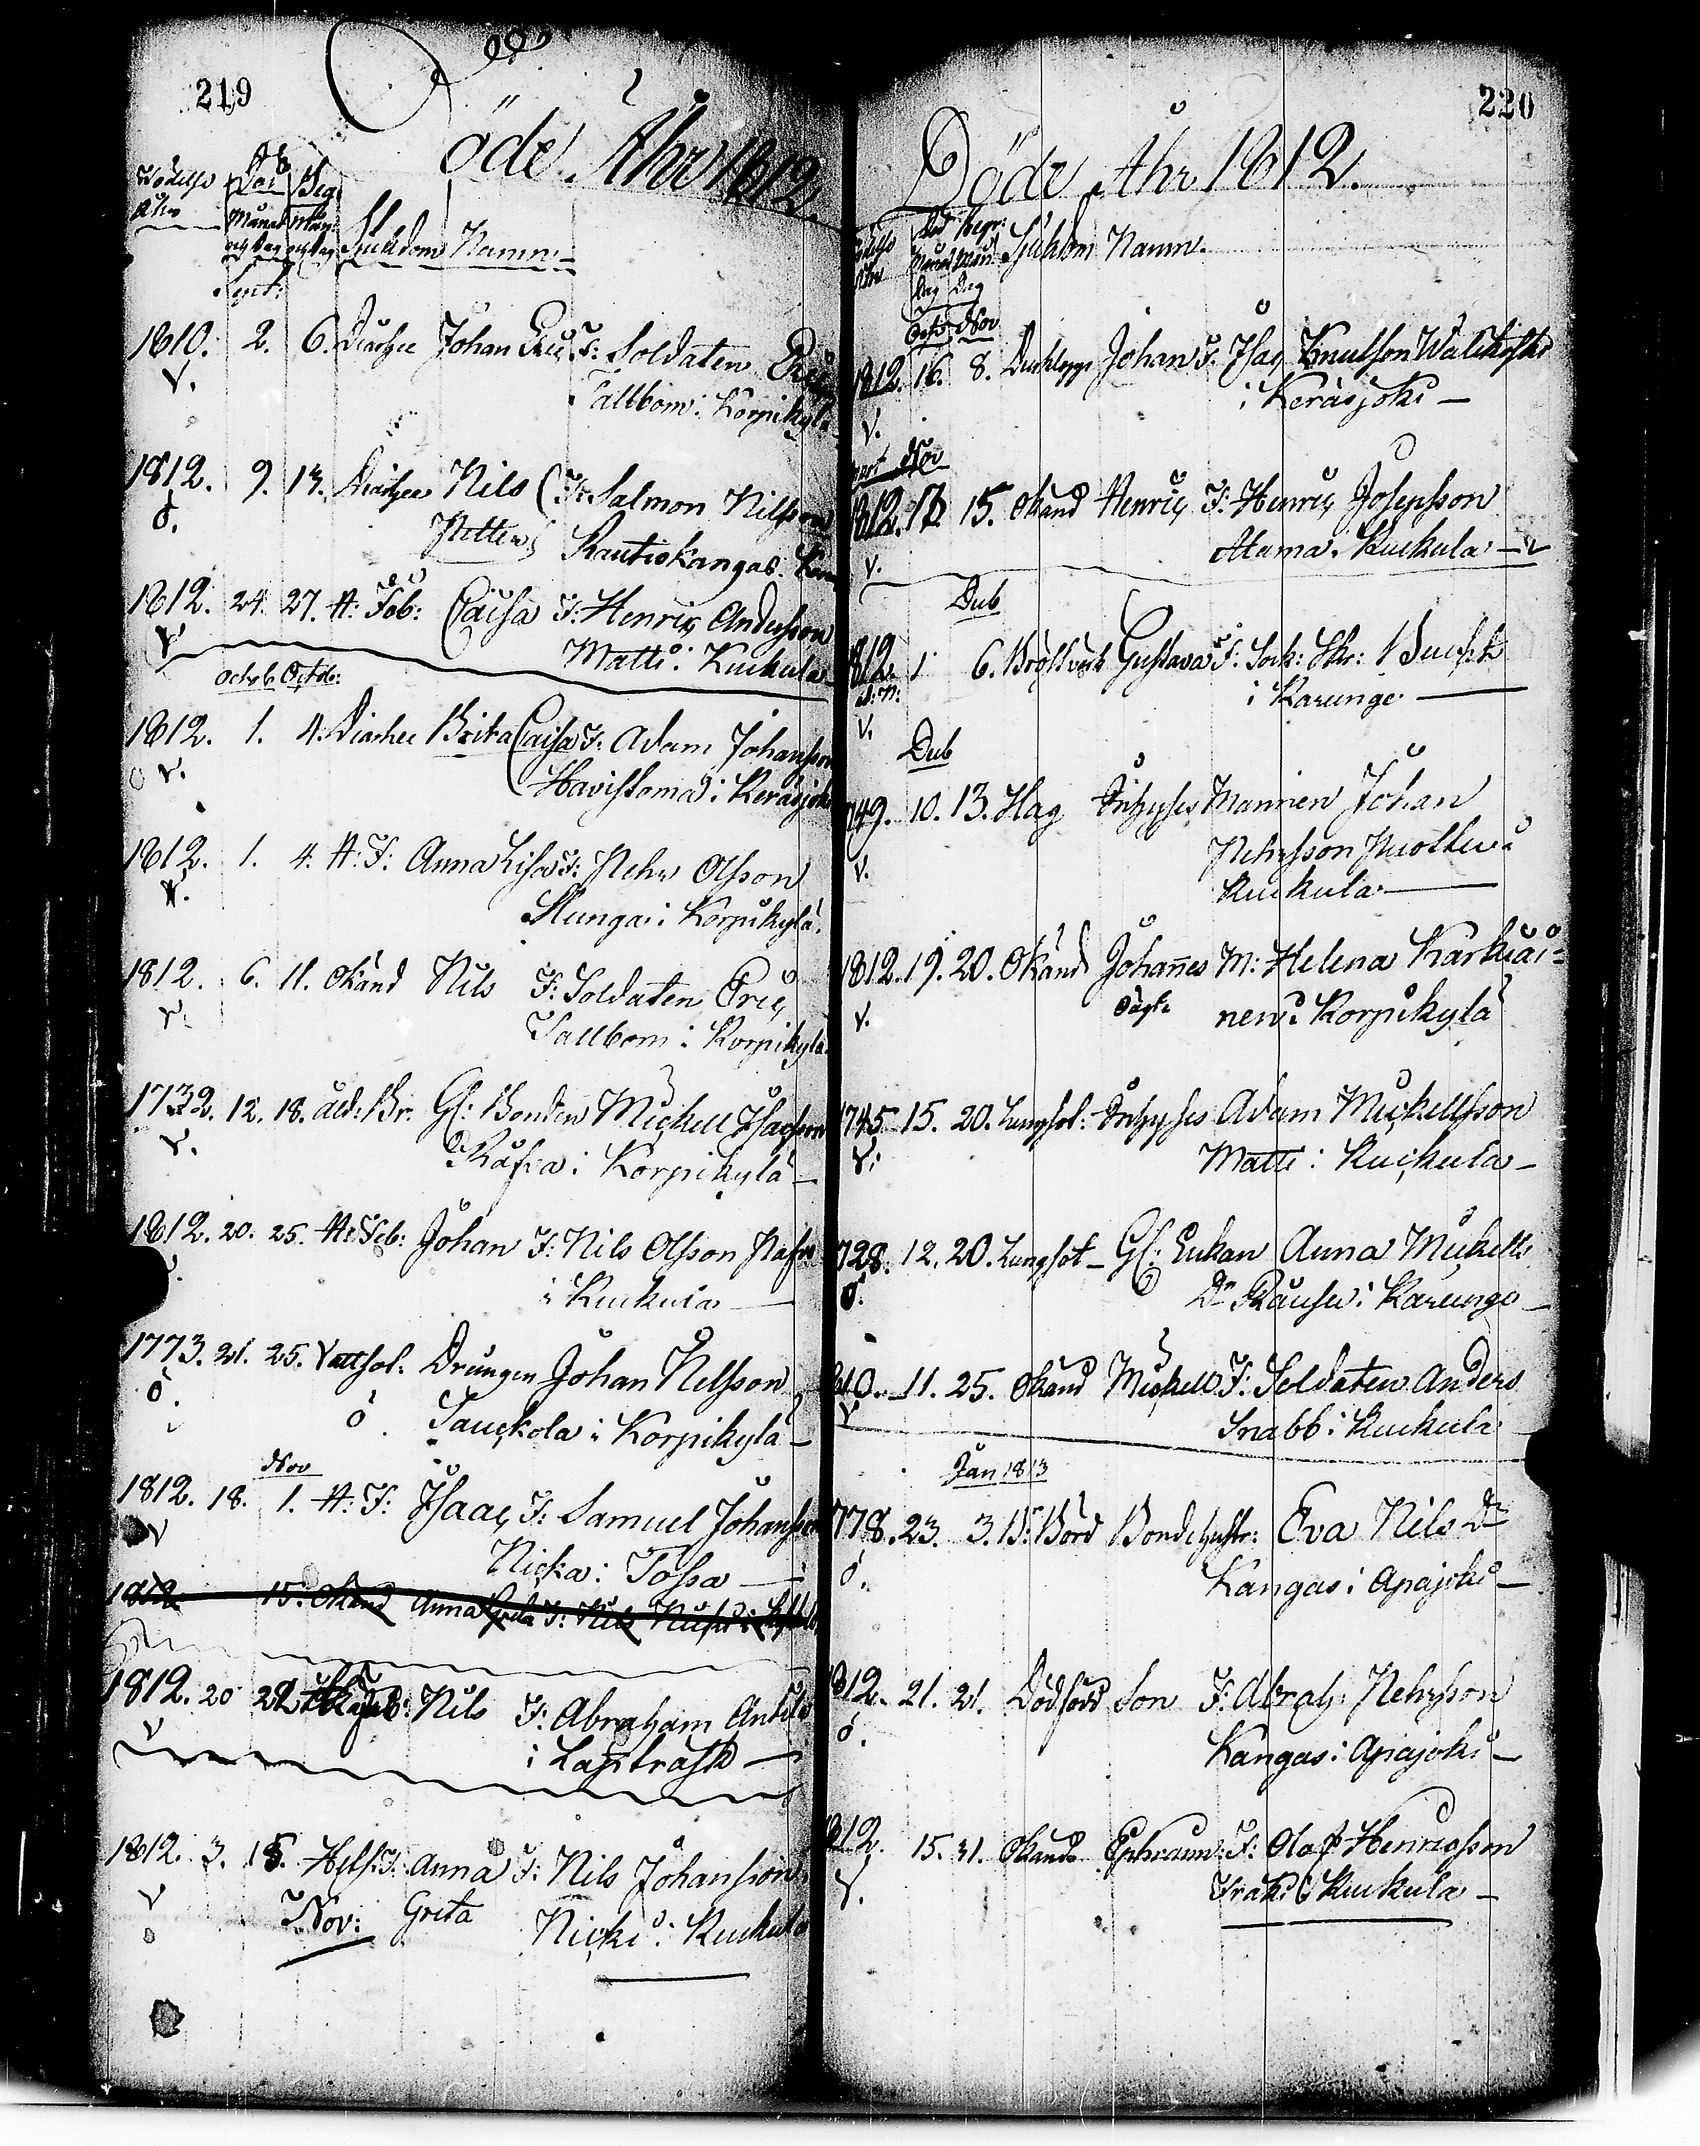 219
Döde Åhr 1812.
Födelse Dö Beg:
Åhr Månad Mån:
og dag og dag Siukdom Namn
Sept:
1810. 2. 6. Diarhee Johan Eric F: Soldaten Eric
V. Tallbom i Korpikylä
1812. 9. 13. Diarhee Nils F: Salmon Nilsson
Ö. Rautiokangas
1812. 24. 27. H: Feb: Caisa F: Henric Andersson
V Matti i Kuckula
Octob. Octob:
1812. 1. 4. Diarhee Brita Caisa F: Adam Johansson
V. Havistoma i Keräsjoki
1812. 1. 4. H: F: Anna Lisa F: Pehr Olsson
V. Slunga i Korpikylä.
1812. 6. 11. Okänd Nils F: Soldaten Eric
V. Tallbom i Korpikylä
1732. 12. 18. åld: Br. Gl: Bonden Mickell Isacsson
V. i Korpikylä
1812. 20. 25. H: Feb: Johan F: Nils Olsson
i Kuckula
1773. 21. 25. Vattsot. Drängen Johan Nilsson
Ö. Ö Tauckola i Korpikylä
Nov
1812. 18. 1. H: F: Isaac F: Samuel Johansson
V Nicka i Tossa
1812. 15. Okänd Anna Greta F: Nils
1812. 20 22 Nils F: Abraham Antila
V i Lappträsk
1812. 3. 15. Helf. F: Anna F: Nils Johansson
V Nov: Greta Nicki i Kuckula
220
Döde Åhr 1812.
Död Begr:
Födelse Månad Mån: Sjukdom Namn.
Åhr Dag Dag
Octob Nov
1812. 16. 8. Johan F: Isac Knutson
V. i Keräsjoki
Nov
1812. 17. 15. Okänd Henric F: Henric Josepsson
V. Alama i Kuckula
Deb
1812. 1 6. Bröstverk Gustava F: Sock: Skr:
V. i Karunge
Deb
1749. 10. 13. Slag Inhyses Mannen Johan
V. Pehrsson
Kuckula
1812. 19. 20. Okänd Johannes M: Helena Karkiai-
V. nen i Korpikylä
1745 15. 20. Lungsot. Inhyses Adam Mickellsson
V. Matti i Kuckula
1728. 12. 20. Lungsot Gl: Enkan Anna Mickells
Ö. Dr i Karunge
1810. 11. 25. Okänd Mickell F: Soldaten Anders
V Snabb i Kuckula
Jan 1813
1778. 23. 3. B: Börd Bondehustr: Eva Nils Dr
Ö. Kangas i Apajoki
1812. 21. 21. Dödfödd Son F: Abrah: Pehrsson
Ö. Kangas i Apajoki
1812. 15. 31. Okänd Ephraim F: Olof Henricsson
V. Fraki i Kuckula